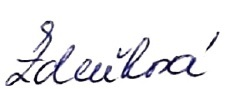 Zdeňková